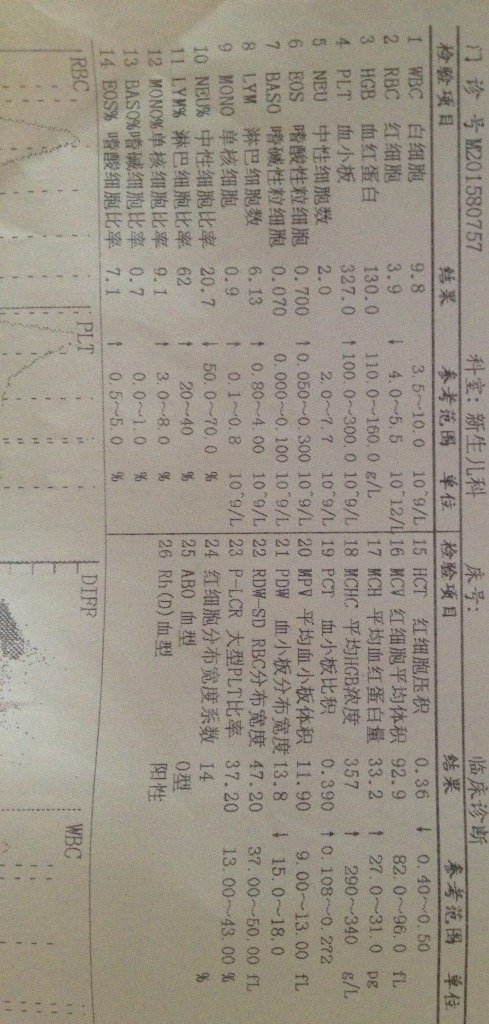 门 诊 号 M201580757 科室: 新生儿科 床号: 临床诊断
检验项目 结果 参考范围 单位 检验项目 结果 参考范围 单位
1 WBC 白细胞 9.8 3.5~10.0 10^9/L 15 HCT 红细胞压积 0.36 ↓ 0.40~0.50
2 RBC 红细胞 3.9 ↓ 4.0~5.5 10^12/L 16 MCV 红细胞平均体积 92.9 82.0~96.0 fL
3 HGB 血红蛋白 130.0 110.0~160.0 g/L 17 MCH 平均血红蛋白量 33.2 ↑ 27.0~31.0 pg
4 PLT 血小板 327.0 ↑ 100.0~300.0 10^9/L 18 MCHC 平均HGB浓度 357 ↑ 290~340 g/L
5 NEU 中性细胞数 2.0 2.0~7.7 10^9/L 19 PCT 血小板比积 0.390 ↑ 0.108~0.272
6 EOS 嗜酸性粒细胞 0.700 ↑ 0.050~0.300 10^9/L 20 MPV 平均血小板体积 11.90 9.00~13.00 fL
7 BASO 嗜碱性粒细胞 0.070 0.000~0.100 10^9/L 21 PDW 血小板分布宽度 13.8 ↓ 15.0~18.0
8 LYM 淋巴细胞数 6.13 ↑ 0.80~4.00 10^9/L 22 RDW-SD RBC分布宽度 47.20 37.00~50.00 fL
9 MONO 单核细胞 0.9 ↑ 0.1~0.8 10^9/L 23 P-LCR 大型PLT比率 37.20 13.00~43.00 %
10 NEU% 中性细胞比率 20.7 ↓ 50.0~70.0 % 24 红细胞分布宽度系数 14 %
11 LYM% 淋巴细胞比率 62 ↑ 20~40 % 25 ABO 血型 O型
12 MONO%单核细胞比率 9.1 ↑ 3.0~8.0 % 26 Rh(D)血型 阳性
13 BASO%嗜碱细胞比率 0.7 0.0~1.0 %
14 EOS% 嗜酸细胞比率 7.1 ↑ 0.5~5.0 %
RBC PLT DIFF WBC